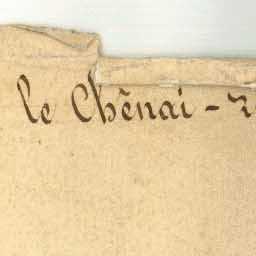 le Chênai -